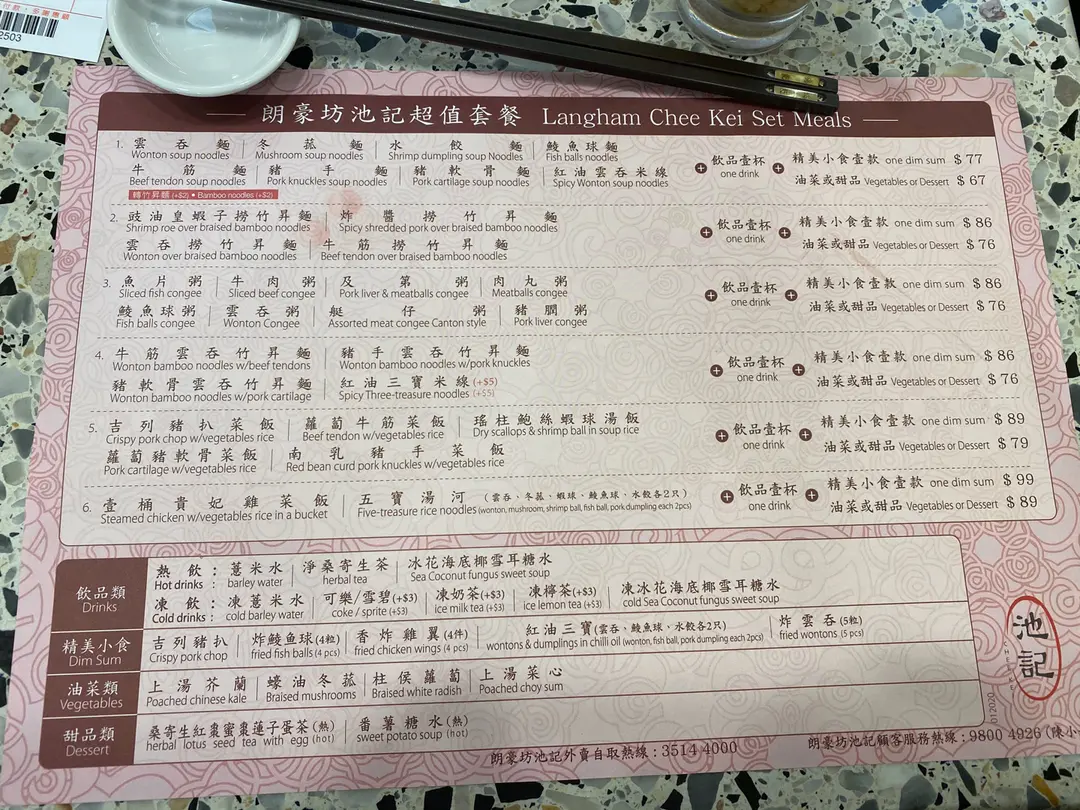 付款,多謝應顧
2503
朗豪坊池記超值套餐 Langham Chee Kei Set Meals
1. 雲吞麵 冬菇麵 水餃麵 鯪魚球麵
Wonton soup noodles Mushroom soup noodles Shrimp dumpling soup Noodles Fish balls noodles
牛筋麵 豬手麵 豬軟骨麵 紅油雲吞米線
Beef tendon soup noodles Pork knuckles soup noodles Pork cartilage soup noodles Spicy Wonton soup noodles
轉竹昇麵 (+$2) • Bamboo noodles (+$2)
+ 飲品壹杯 one drink + 精美小食壹款 one dim sum $ 77
油菜或甜品 Vegetables or Dessert $ 67
2. 豉油皇蝦子撈竹昇麵 炸醬撈竹昇麵
Shrimp roe over braised bamboo noodles Spicy shredded pork over braised bamboo noodles
雲吞撈竹昇麵 牛筋撈竹昇麵
Wonton over braised bamboo noodles Beef tendon over braised bamboo noodles
+ 飲品壹杯 one drink + 精美小食壹款 one dim sum $ 86
油菜或甜品 Vegetables or Dessert $ 76
3. 魚片粥 牛肉粥 及第粥 肉丸粥
Sliced fish congee Sliced beef congee Pork liver & meatballs congee Meatballs congee
鯪魚球粥 雲吞粥 艇仔粥 豬膶粥
Fish balls congee Wonton Congee Assorted meat congee Canton style Pork liver congee
+ 飲品壹杯 one drink + 精美小食壹款 one dim sum $ 86
油菜或甜品 Vegetables or Dessert $ 76
4. 牛筋雲吞竹昇麵 豬手雲吞竹昇麵
Wonton bamboo noodles w/beef tendons Wonton bamboo noodles w/pork knuckles
豬軟骨雲吞竹昇麵 紅油三寶米線 (+$5)
Wonton bamboo noodles w/pork cartilage Spicy Three-treasure noodles (+$5)
+ 飲品壹杯 one drink + 精美小食壹款 one dim sum $ 86
油菜或甜品 Vegetables or Dessert $ 76
5. 吉列豬扒菜飯 蘿蔔牛筋菜飯 瑤柱鮑絲蝦球湯飯
Crispy pork chop w/vegetables rice Beef tendon w/vegetables rice Dry scallops & shrimp ball in soup rice
蘿蔔豬軟骨菜飯 南乳豬手菜飯
Pork cartilage w/vegetables rice Red bean curd pork knuckles w/vegetables rice
+ 飲品壹杯 one drink + 精美小食壹款 one dim sum $ 89
油菜或甜品 Vegetables or Dessert $ 79
6. 壹桶貴妃雞菜飯 五寶湯河 (雲吞、冬菇、蝦球、鯪魚球、水餃各2只)
Steamed chicken w/vegetables rice in a bucket Five-treasure rice noodles (wonton, mushroom, shrimp ball, fish ball, pork dumpling each 2pcs)
+ 飲品壹杯 one drink + 精美小食壹款 one dim sum $ 99
油菜或甜品 Vegetables or Dessert $ 89
飲品類 Drinks
熱飲: 薏米水 淨桑寄生茶 冰花海底椰雪耳糖水
Hot drinks: barley water herbal tea Sea Coconut fungus sweet soup
凍飲: 凍薏米水 可樂/雪碧(+$3) 凍奶茶(+$3) 凍檸茶(+$3) 凍冰花海底椰雪耳糖水
Cold drinks: cold barley water coke / sprite (+$3) ice milk tea (+$3) ice lemon tea (+$3) cold Sea Coconut fungus sweet soup
精美小食 Dim Sum
吉列豬扒 炸鯪魚球(4粒) 香炸雞翼(4件) 紅油三寶(雲吞、鯪魚球、水餃各2只) 炸雲吞(5粒)
Crispy pork chop fried fish balls (4 pcs) fried chicken wings (4 pcs) wontons & dumplings in chilli oil (wonton, fish ball, pork dumpling each 2pcs) fried wontons (5 pcs)
油菜類 Vegetables
上湯芥蘭 蠔油冬菇 柱侯蘿蔔 上湯菜心
Poached chinese kale Braised mushrooms Braised white radish Poached choy sum
甜品類 Dessert
桑寄生紅棗蜜棗蓮子蛋茶(熱) 番薯糖水(熱)
herbal lotus seed tea with egg (hot) sweet potato soup (hot)
朗豪坊池記外賣自取熱線:3514 4000
朗豪坊池記顧客服務熱線:9800 4926 (陳小
池記
012020